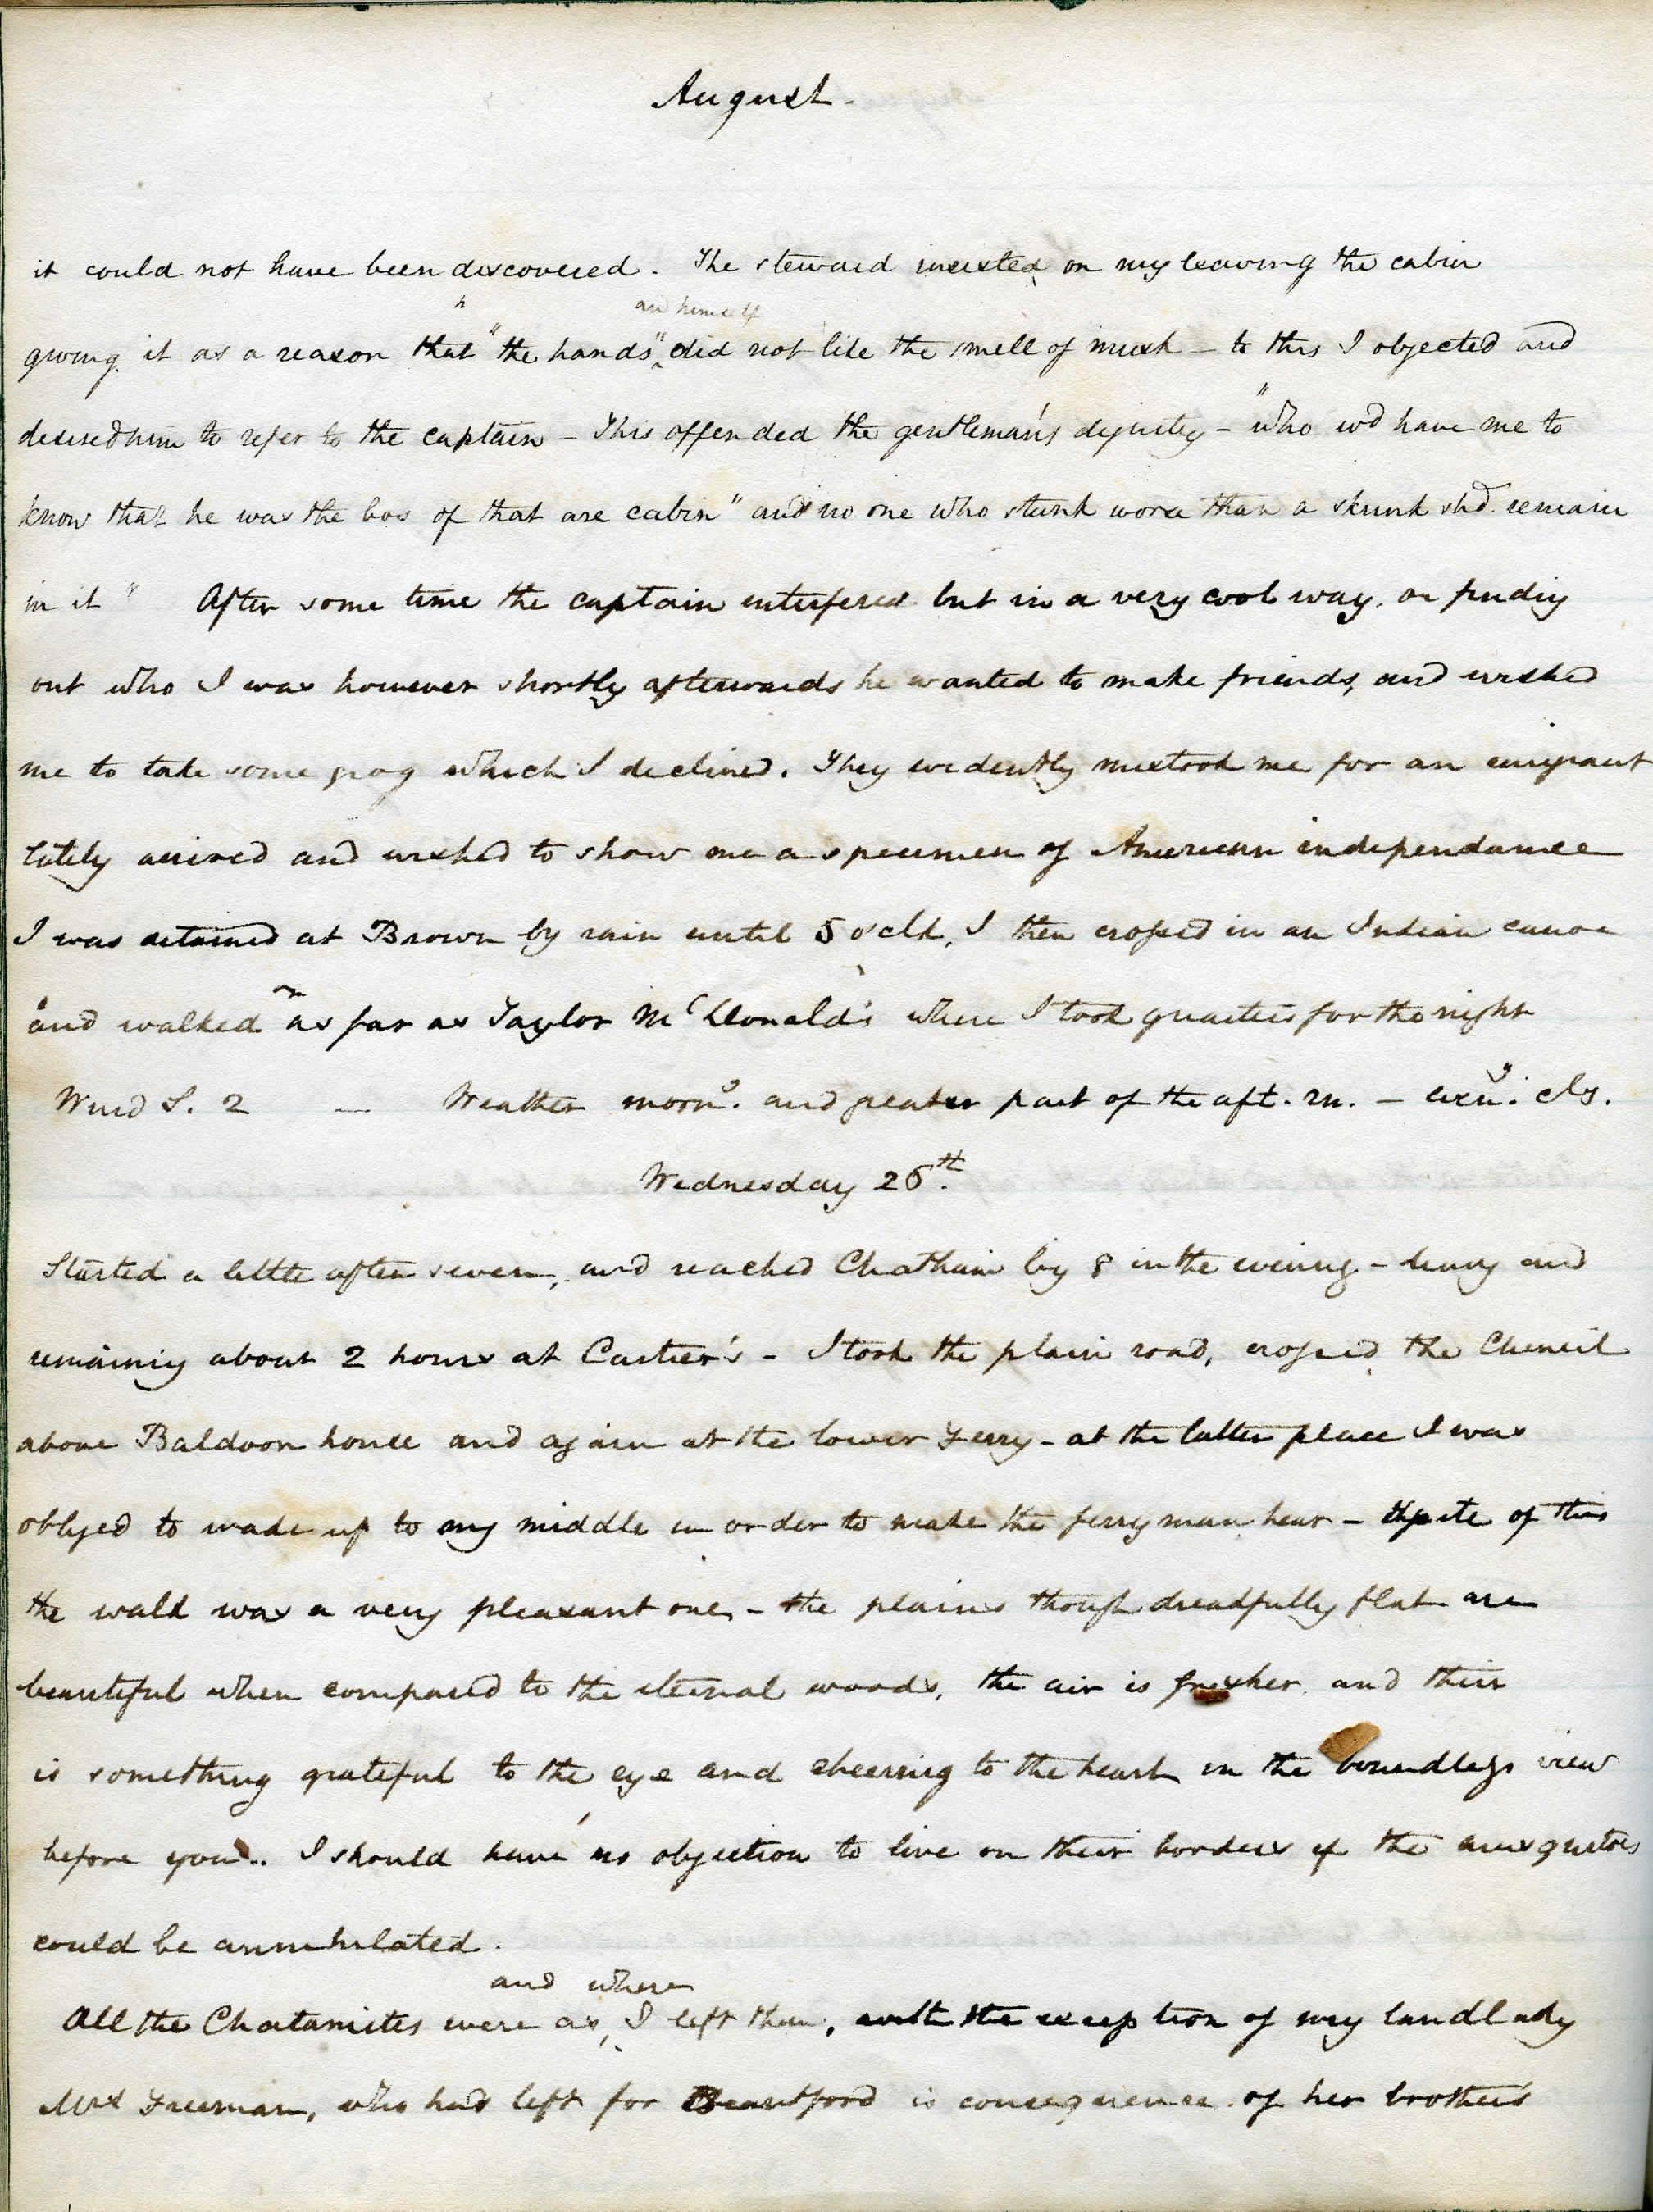 August.
it could not have been discovered. The steward insisted on my leaving the cabin
and himself
giving it as a reason that "the hands" did not like the smell of musk - to this I objected and
desired him to refer to the captain - This offended the gentleman's dignity - "who wd have me to
know that he was the bos of that are cabin" and no one who stunk worse than a skunk shd. remain
in it" After some time the captain interfered but in a very cool way, on findig
out who I was however shortly afterwards he wanted to make friends, and wished
me to take some grog which I declined. They evidently mistook me for an emigrant
lately arrived and wished to show me a specimen of American independance
I was detained at Brown by rain until 5 o'clk, I then crossed in an Indian canoe
on
and walked as far as Taylor McDonald's where I took quarters for the night
Wind S. 2 — Weather morng. and greater part of the aft. rn. - eveng. cly.
Wednesday 26th.
Started a little after seven, and reached Chatham by 8 in the evening - having and
remainig about 2 hours at Cartier's - I took the plain road, crossed the Cheneil
above Baldoon house and again at the lower Ferry - at the latter place I was
obliged to wade up to my middle in order to make the ferryman hear - spite of this
the walk was a very pleasant one, - the plains though dreadfully flat are
beautiful when compared to the eternal woods, the air is fresher and their
is something grateful to the eye and cheering to the heart in the boundless view
before you.. I should have no objection to live on their borders if the musquitoes
could be annihilated.
and where
All the Chatamites were as, I left them, with the exception of my landlady
Mrs Freeman, who had left for Brantford in consequence of her brother's